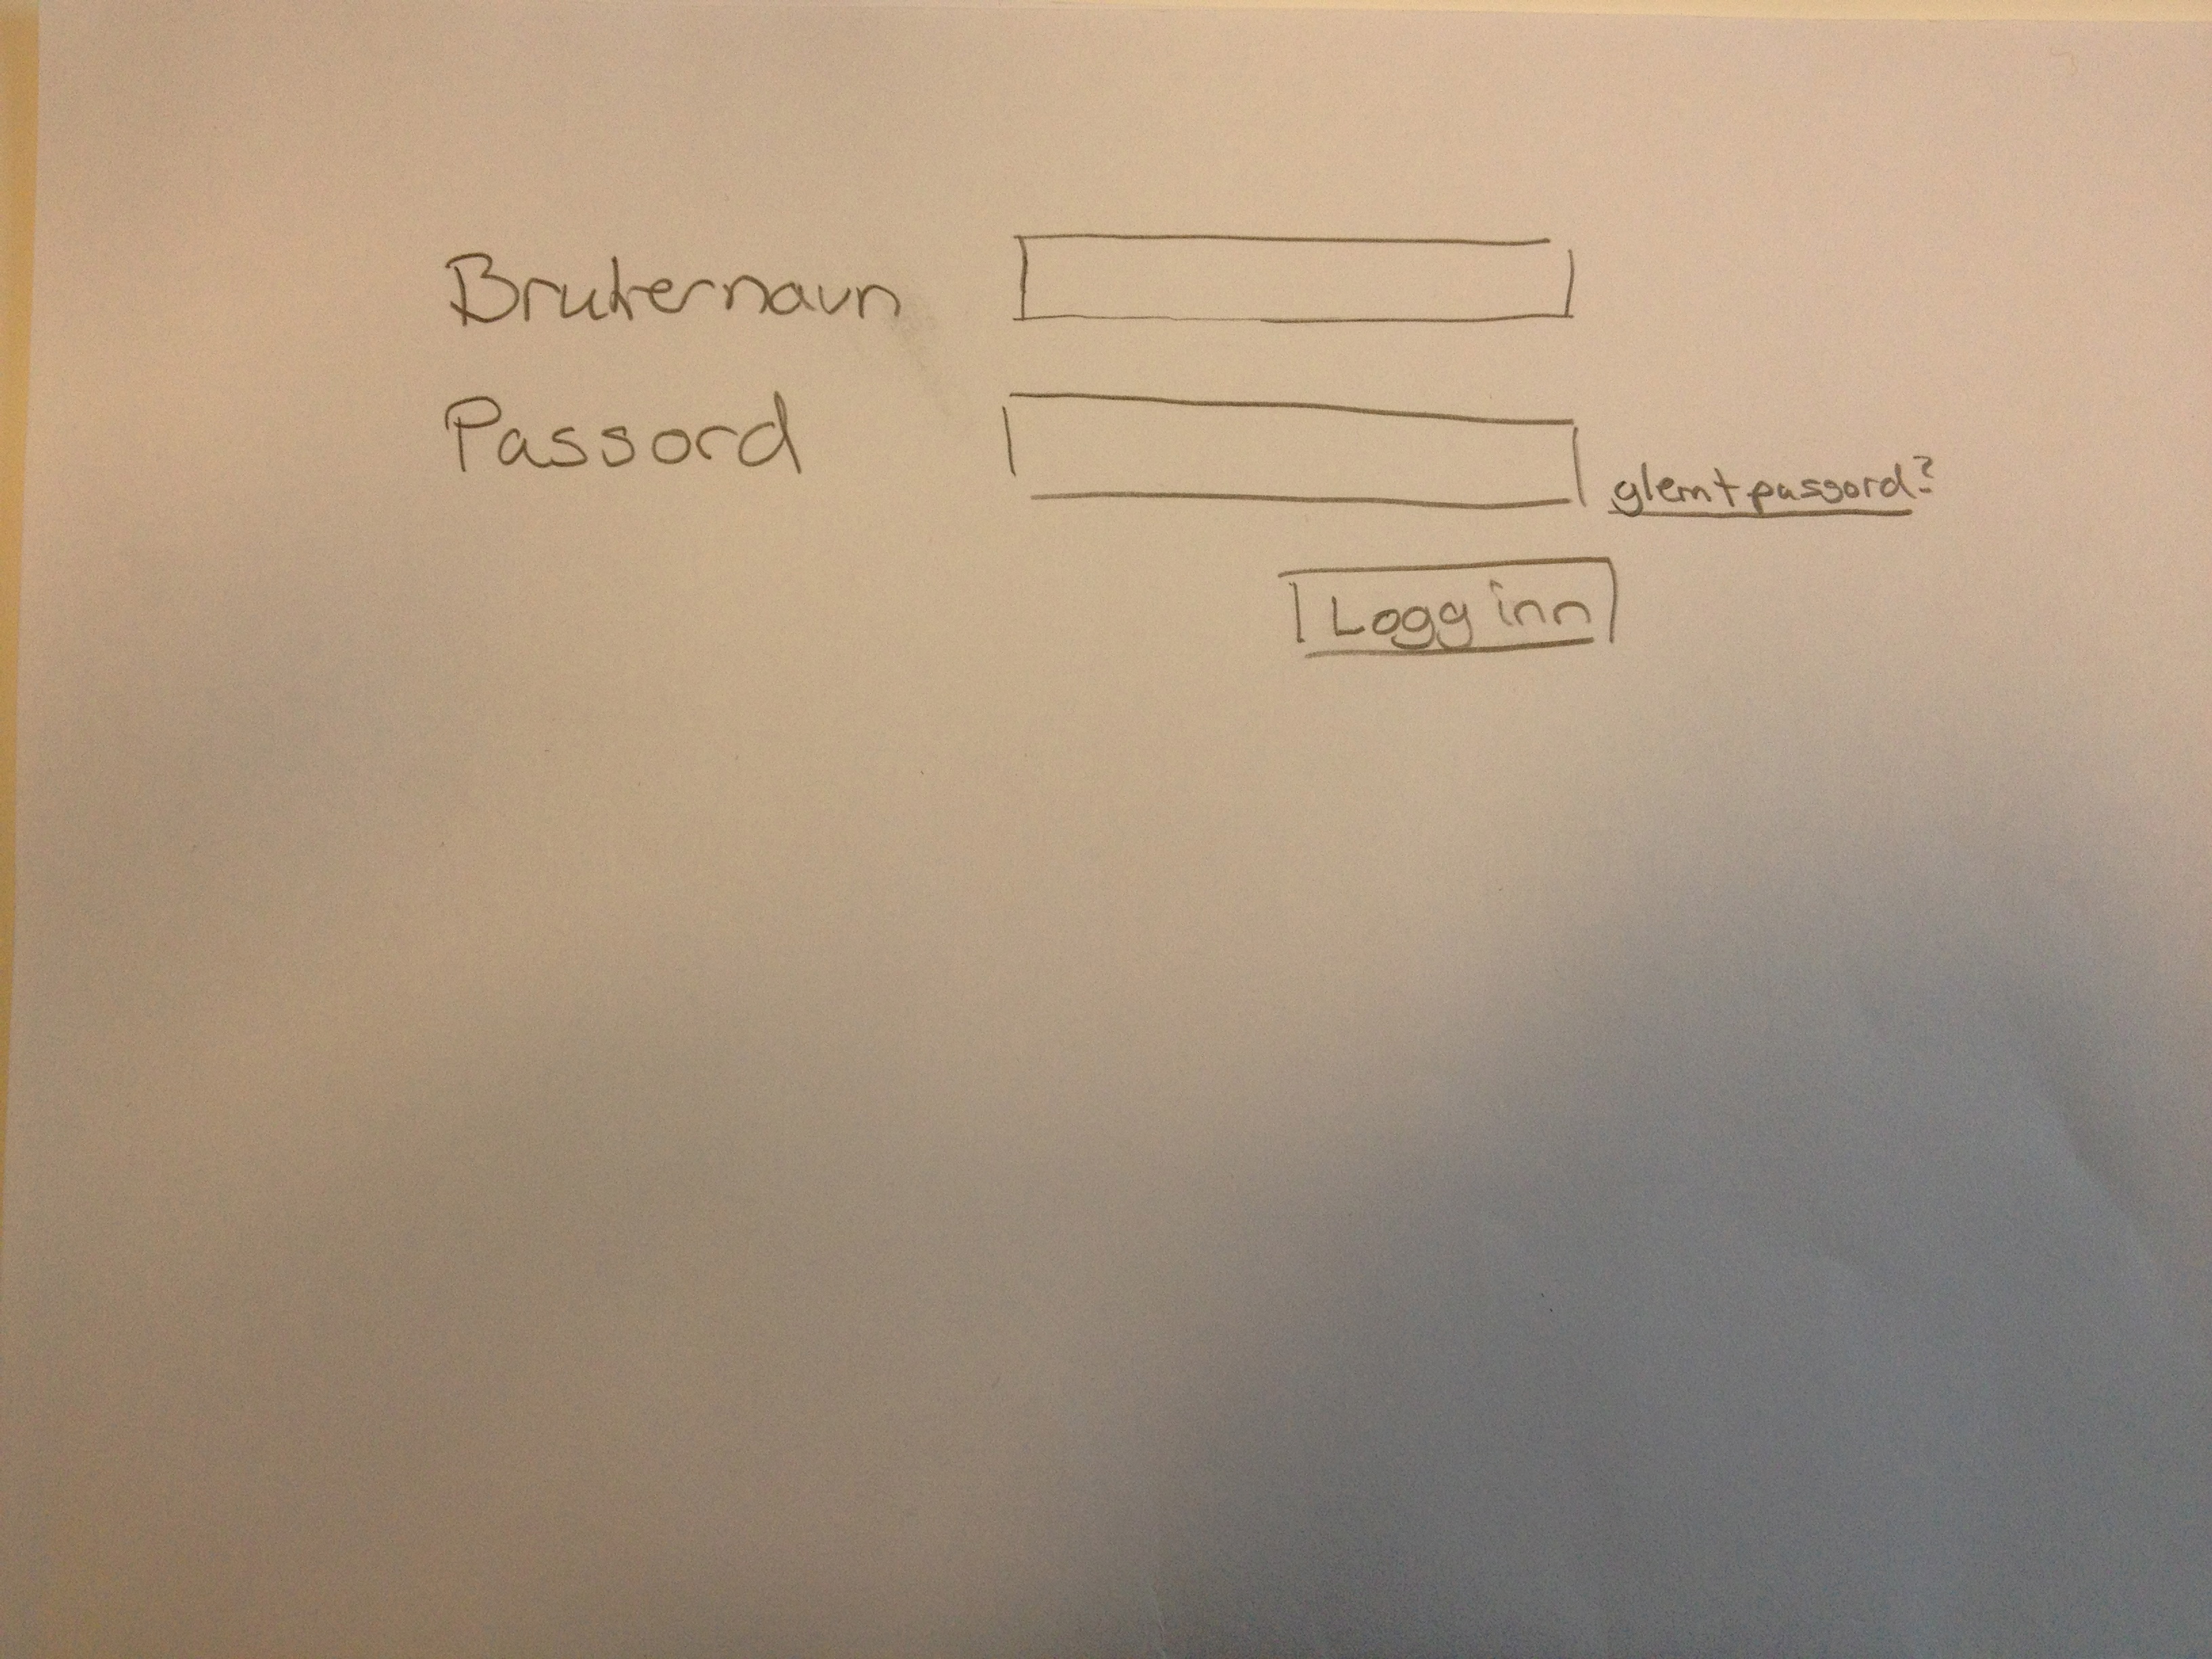 Brukernavn
Passord
glemt passord?
Logg inn